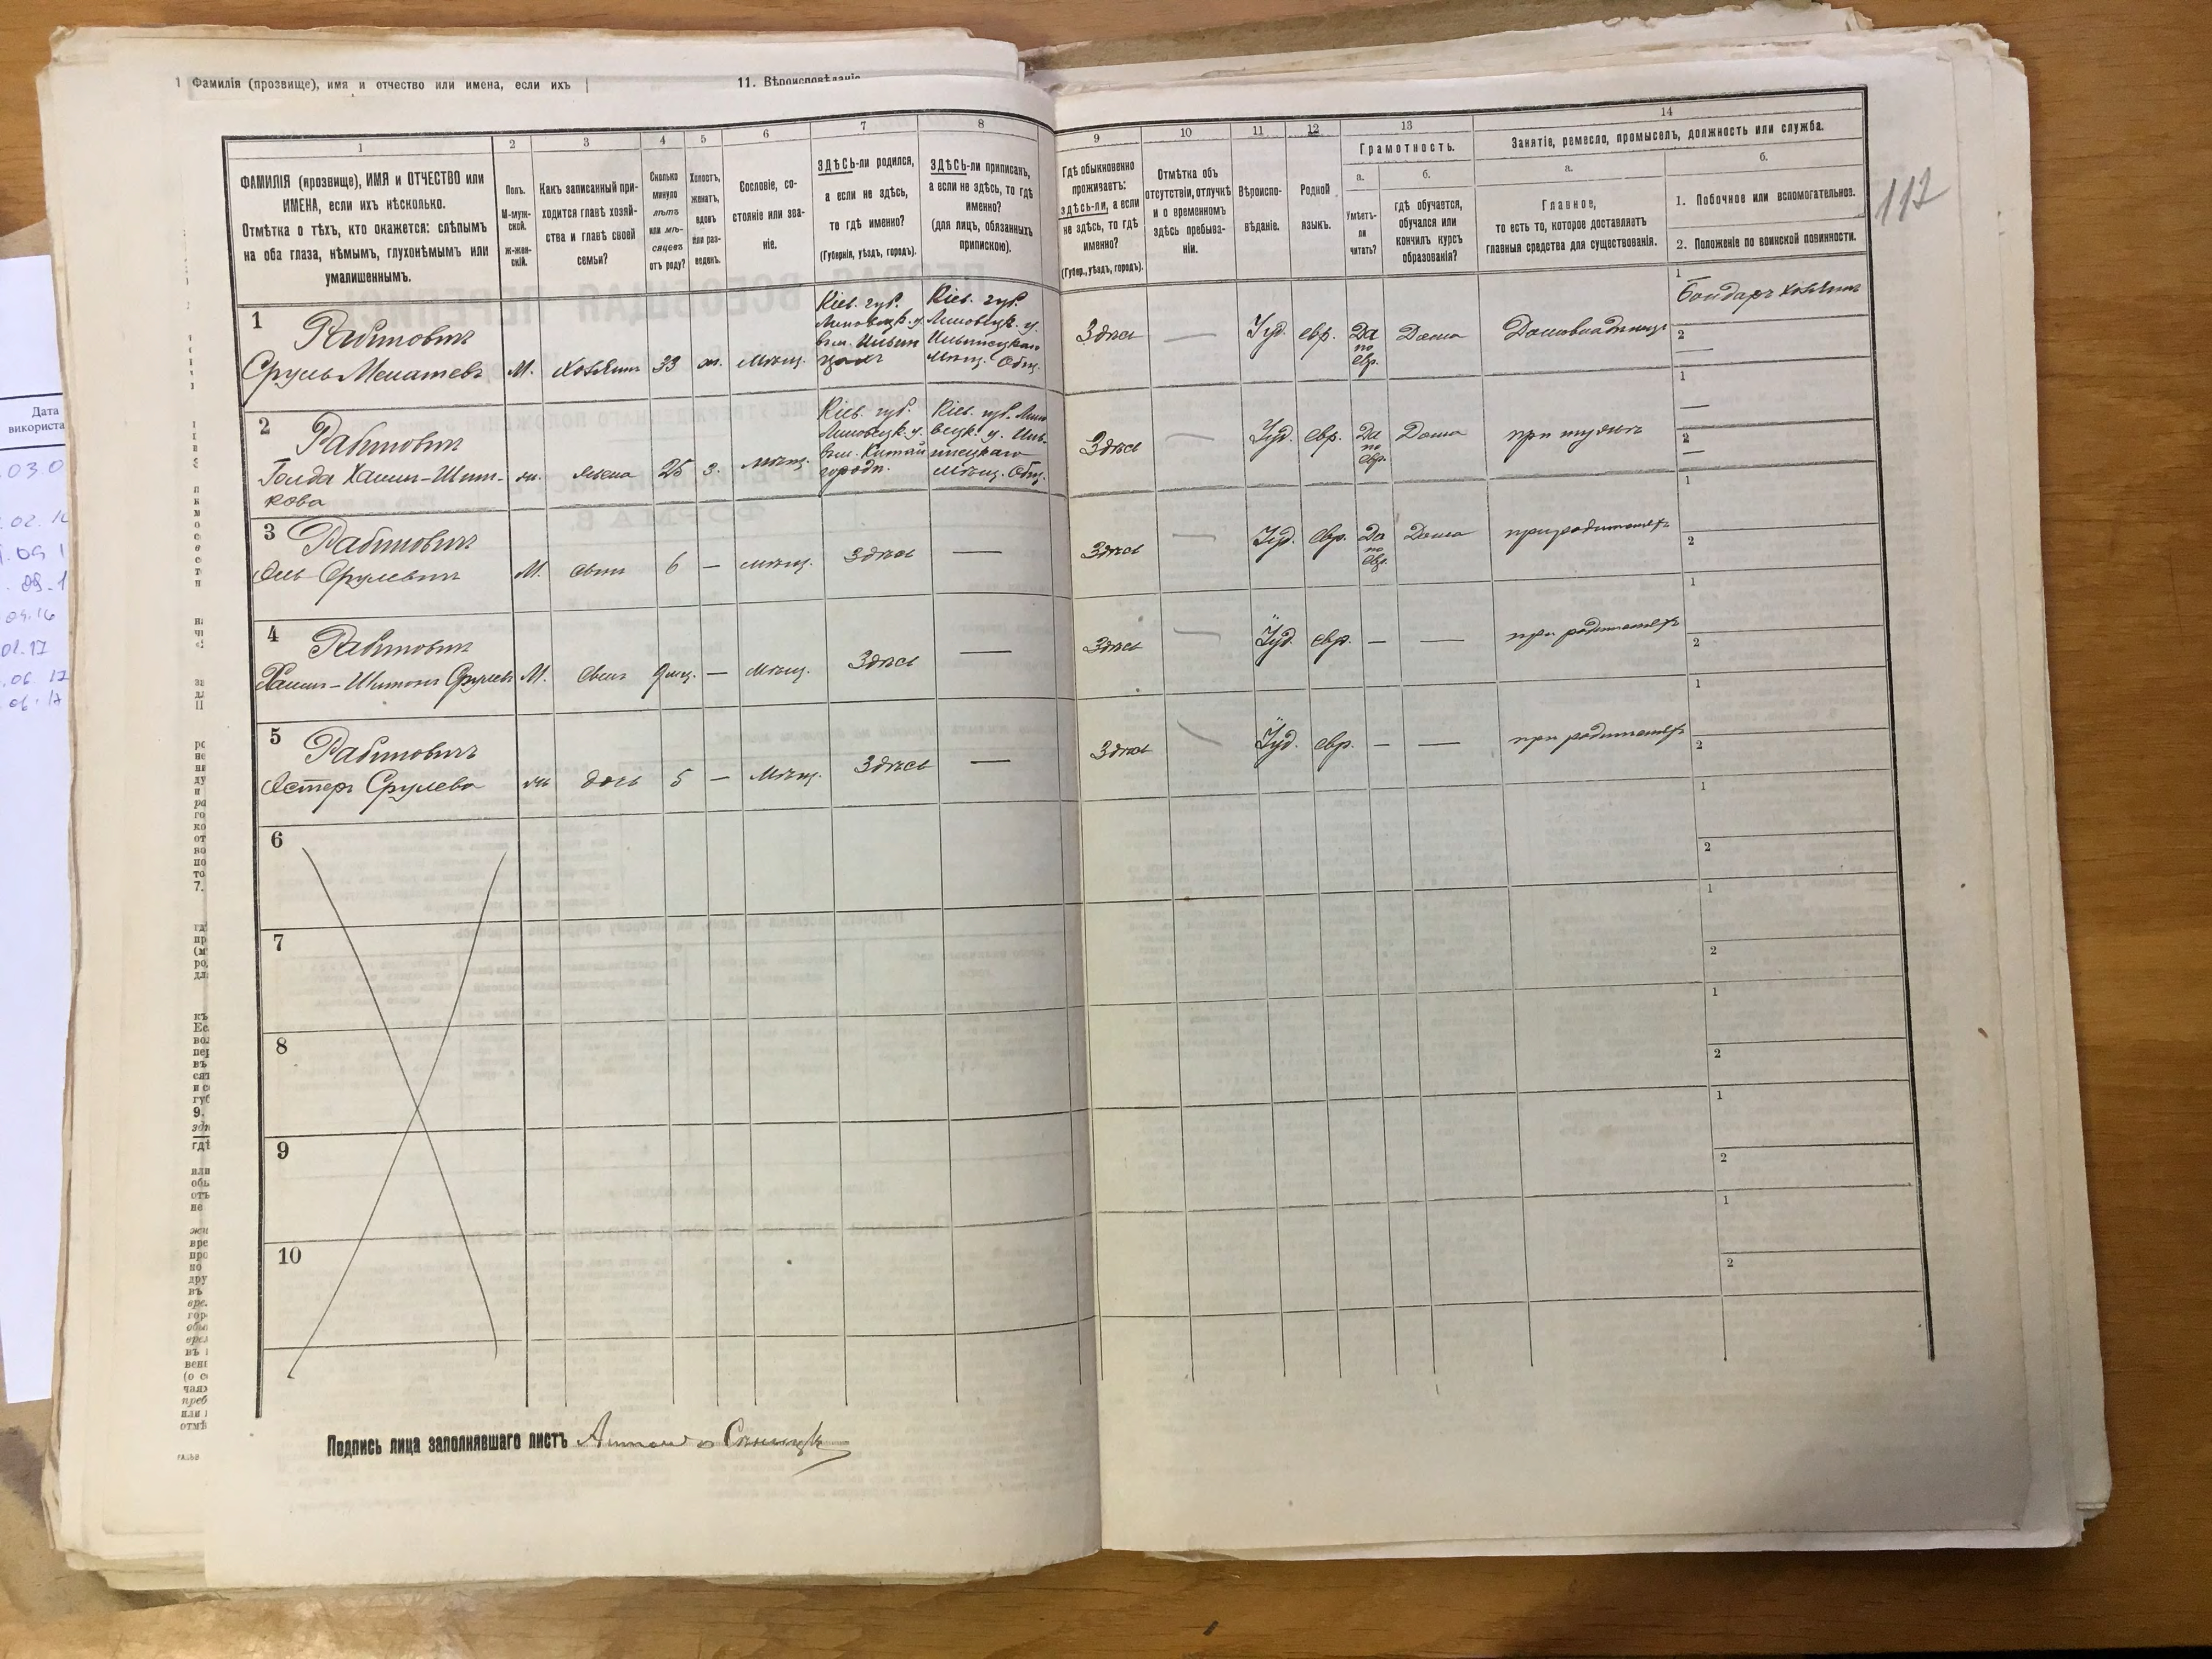 1 Фамилія (прозвище), имя и отчество или имена, если ихъ
11. Вѣроисповѣданіе
1 2 3 4 5 6 7 8 9 10 11 12 13 14
ФАМИЛІЯ (прозвище), ИМЯ и ОТЧЕСТВО или
ИМЕНА, если ихъ нѣсколько.
Отмѣтка о тѣхъ, кто окажется: слѣпымъ
на оба глаза, нѣмымъ, глухонѣмымъ или
умалишеннымъ.
Полъ.
М-муж-
ской.
Ж-жен-
скій.
Какъ записанный при-
ходится главѣ хозяй-
ства и главѣ своей
семьи?
Сколько
минуло
лѣтъ
или мѣ-
сяцевъ
отъ роду?
Холостъ,
женатъ,
вдовъ
или раз-
веденъ.
Сословіе, со-
стояніе или зва-
ніе.
ЗДѢСЬ-ли родился,
а если не здѣсь,
то гдѣ именно?
(Губернія, уѣздъ, городъ).
ЗДѢСЬ-ли приписанъ,
а если не здѣсь, то гдѣ
именно?
(для лицъ, обязанныхъ
припискою).
Гдѣ обыкновенно
проживаетъ:
здѣсь-ли, а если
не здѣсь, то гдѣ
именно?
(Губер., уѣздъ, городъ).
Отмѣтка объ
отсутствіи, отлучкѣ
и о временномъ
здѣсь пребыва-
ніи.
Вѣроиспо-
вѣданіе.
Родной
языкъ.
Грамотность.
а.
Умѣетъ-
ли
читать?
б.
гдѣ обучается,
обучался или
кончилъ курсъ
образованія?
Занятіе, ремесло, промыселъ, должность или служба.
а.
Главное,
то есть то, которое доставляетъ
главныя средства для существованія.
б.
1. Побочное или вспомогательное.
2. Положеніе по воинской повинности.
117
1 Рабиновичъ
Сруль Менашевъ М. Хозяинъ 33 ж. мѣщ.
Кіев. губ.
Липовецк. у.
Кіев. губ.
Липовецк. у.
Ильинецкаго
мѣщ. Общ.
Здѣсь — Іуд. евр. Да по евр. Дома Домовладѣлецъ
1 Бондарь хозяинъ
2 —
2 Рабиновичъ
Голда Хаим-Шим-
кова ж. жена 25 з. мѣщ.
Кіев. губ.
Липовецк. у.
Китай
городъ.
Кіев. губ. Липо
вецк. у. Иль-
инецкаго
мѣщ. Общ.
Здѣсь — Іуд. евр. Да по евр. Дома при мужѣ
1 —
2 —
3 Рабиновичъ
Срулевичъ М. сынъ 6 — мѣщ. Здѣсь — Здѣсь — Іуд. евр. Да по евр. Дома при родителяхъ
1
2
4 Рабиновичъ
Хаим-Шимонъ Срулев М. сынъ 9 мц. — мѣщ. Здѣсь — Здѣсь — Іуд. евр. — — при родителяхъ
1
2
5 Рабиновичъ
Эстеръ Срулева ж дочь 5 — мѣщ. Здѣсь — Здѣсь — Іуд. евр. — — при родителяхъ
1
2
6
1
2
7
1
2
8
1
2
9
1
2
10
1
2
Подпись лица заполнявшаго листъ
Дата
використа
03.0
02.1
04.16
02.17
06.17
06.17